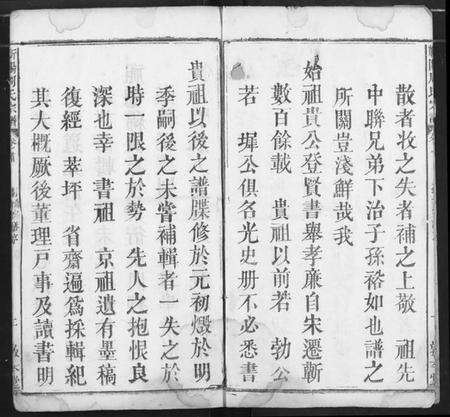 散者收之失者補之上敬 祖先
中聯兄弟下治子孫裕如也譜之
所關豈淺鮮哉我
始祖貴公登賢書舉孝廉自朱遷蘄
數百餘載 貴祖以前若 勃公
若 墀公俱名光史册不必悉書
貴祖以後之譜牒修於元初燬於明
季嗣後之未嘗補輯者一失之於
時一限之於勢 先人之抱恨良
深也幸 書祖 京祖遺有墨稿
復經 萃坪 省齋遍爲採輯紀
其大概厥後董理戸事及讀書明